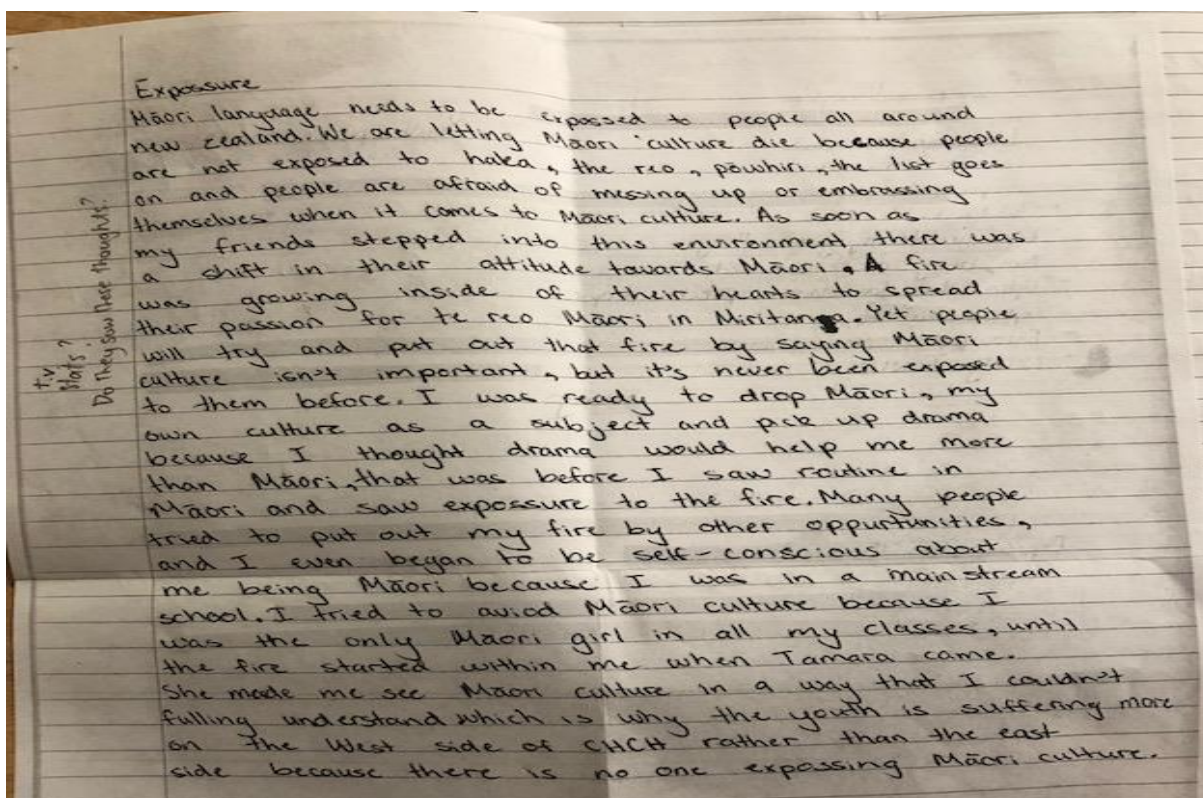 Expossure
Māori language needs to be expossed to people all around
new zealand. We are letting Māori culture die because people
are not exposed to haka, the reo, pōwhiri, the list goes
on and people are afraid of messing up or embrassing
themselves when it comes to Māori culture. As soon as
my friends stepped into this environment there was
a shift in their attitude towards Māori. A fire
was growing inside of their hearts to spread
their passion for te reo Māori in Miritanga. Yet people
will try and put out that fire by saying Māori
culture isn't important, but it's never been exposed
to them before. I was ready to drop Māori, my
own culture as a subject and pick up drama
because I thought drama would help me more
than Māori, that was before I saw routine in
Māori and saw expossure to the fire. Many people
tried to put out my fire by other oppurtunities,
and I even began to be self-conscious about
me being Māori because I was in a main stream
school. I tried to aviod Māori culture because I
was the only Māori girl in all my classes, until
the fire started within me when Tamara came.
She made me see Māori culture in a way that I couldn't
fulling understand which is why the youth is suffering more
on the West side of CHCH rather than the east
side because there is no one expossing Māori culture.
t.v
Do they saw there thought?